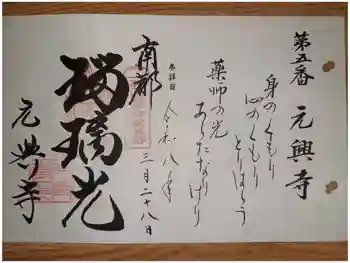 第五番　元興寺
身のくもり
心のくもり
とりはらう
薬師の光
あらたなりけり
参拝日　令和八年
三月二十八日
南都
瑠璃光
元興寺